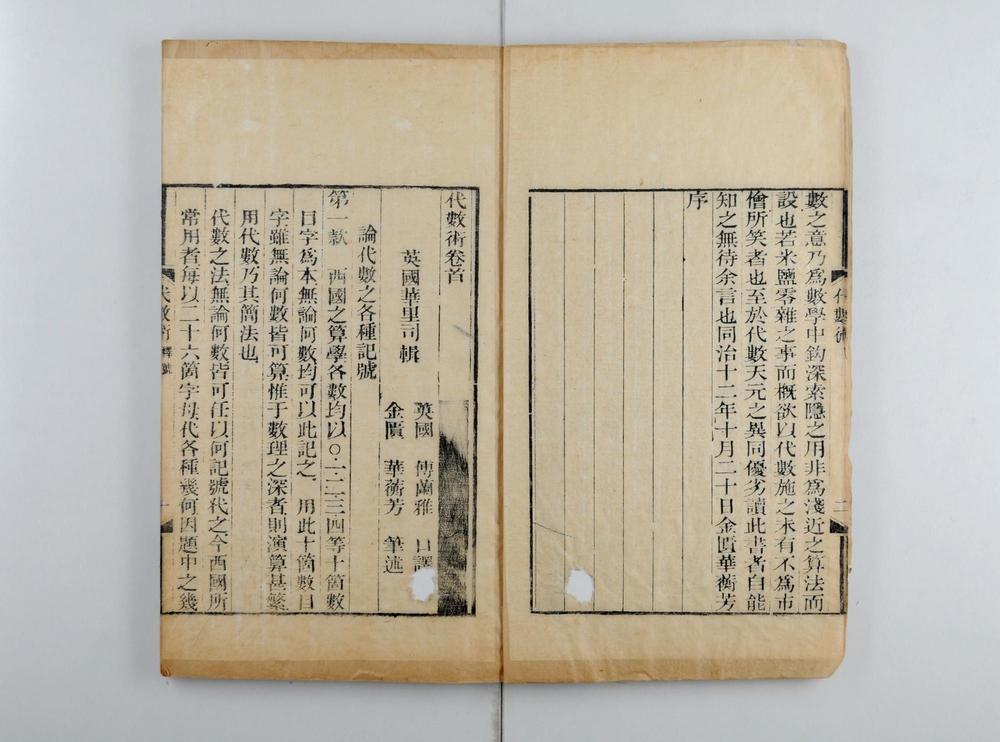 數之意乃爲數學中鈎深索隱之用非爲淺近之算法而
設也若米鹽零雜之事而概欲以代數施之未有不爲市
儈所笑者也至於代數天元之異同優劣讀此書者自能
知之無待余言也同治十二年十月二十日金匱華蘅芳
序
代數術
二
代數術卷首
英國 傅蘭雅 口譯
英國華里司輯
金匱 華蘅芳 筆述
論代數之各種記號
第一款 西國之算學各數均以〇一二三四等十箇數
目字爲本無論何數均可以此記之 用此十箇數目
字雖無論何數皆可算惟于數理之深者則演算甚繁
用代數乃其簡法也
代數之法無論何數皆可任以何記號代之今西國所
常用者每以二十六箇字母代各種幾何因題中之幾
代數術 釋號
一